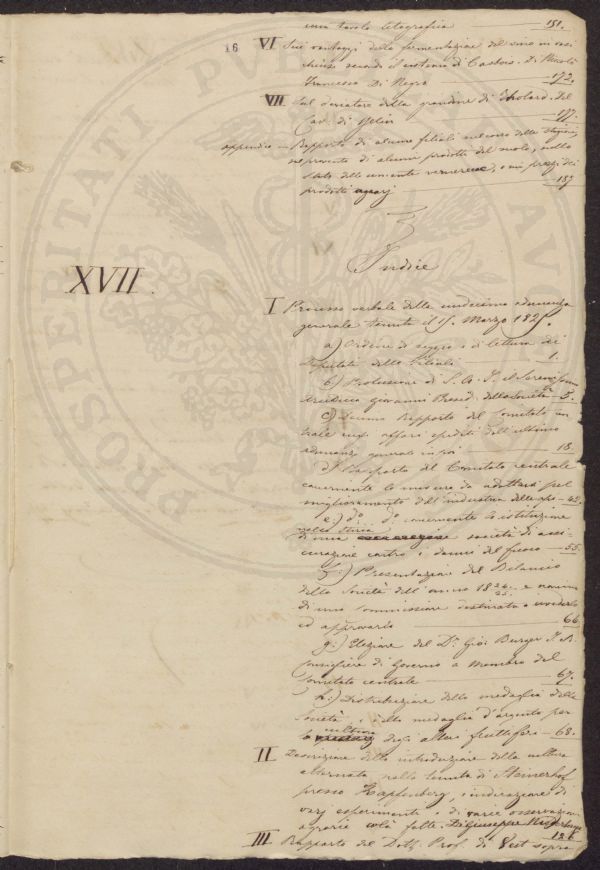 una tavola litografica — 151.
16 VI Sui vantaggi della fermentazione del vino in vasi
chiusi secondo il sistema di Casbois. Di Nicolò
Francesco Di Negro — 172.
VII Sul scaricatore della grandine di Tholard. Del
Cav. di — 177.
appendice — Rapporto di alcune filiali sul corso della stagione,
sul provento di alcuni prodotti del suolo, sullo
stato delle cimente, e sui prezzi dei
prodotti agrarj — 187
Indice
XVII.
I Processo verbale della undecima adunanza
generale tenuta il 15. Marzo 1825.
a) Ordine di seggio e di lettura dei
Deputati delle filiali — 1.
b) Prolusione di S. A. I. il Serenissimo
Arciduca Giovanni Presid. della Società — 5.
c) Sunto Rapporto del Comitato cen
trale sugli affari spediti dall'ultima
adunanza generale in poi — 18.
d) Rapporto del Comitato centrale
concernente le misure da adottarsi pel
miglioramento dell'industria delle api — 42.
e.) do do concernente la istituzione
nella Stiria
di una società di assi-
curazione contro i danni del fuoco — 55.
f.) Presentazione del Bilancio
della Società dell'anno 1824. e nomina
25.
di una Commissione destinata a rivederlo
ed approvarlo — 66
g.) Elezione del Dr. Gio: Burger I. R.
Consigliere di Governo a Membro del
Comitato centrale — 67.
h.) Distribuzione della medaglia della
Società, e della medaglia d'argento per
coltura
la degli alberi fruttiferi — 68.
II Descrizione della introduzione della coltura
alternata nella tenuta di Steinerhof
presso Kapfenberg, indicazione di
varj esperimenti e di varie osservazioni
agrarie colà fatte. Di Giuseppe
128
III Rapporto del Dott. Prof. di Vest sopra
PROSPERITATI PUBLICAE AUGENDAE